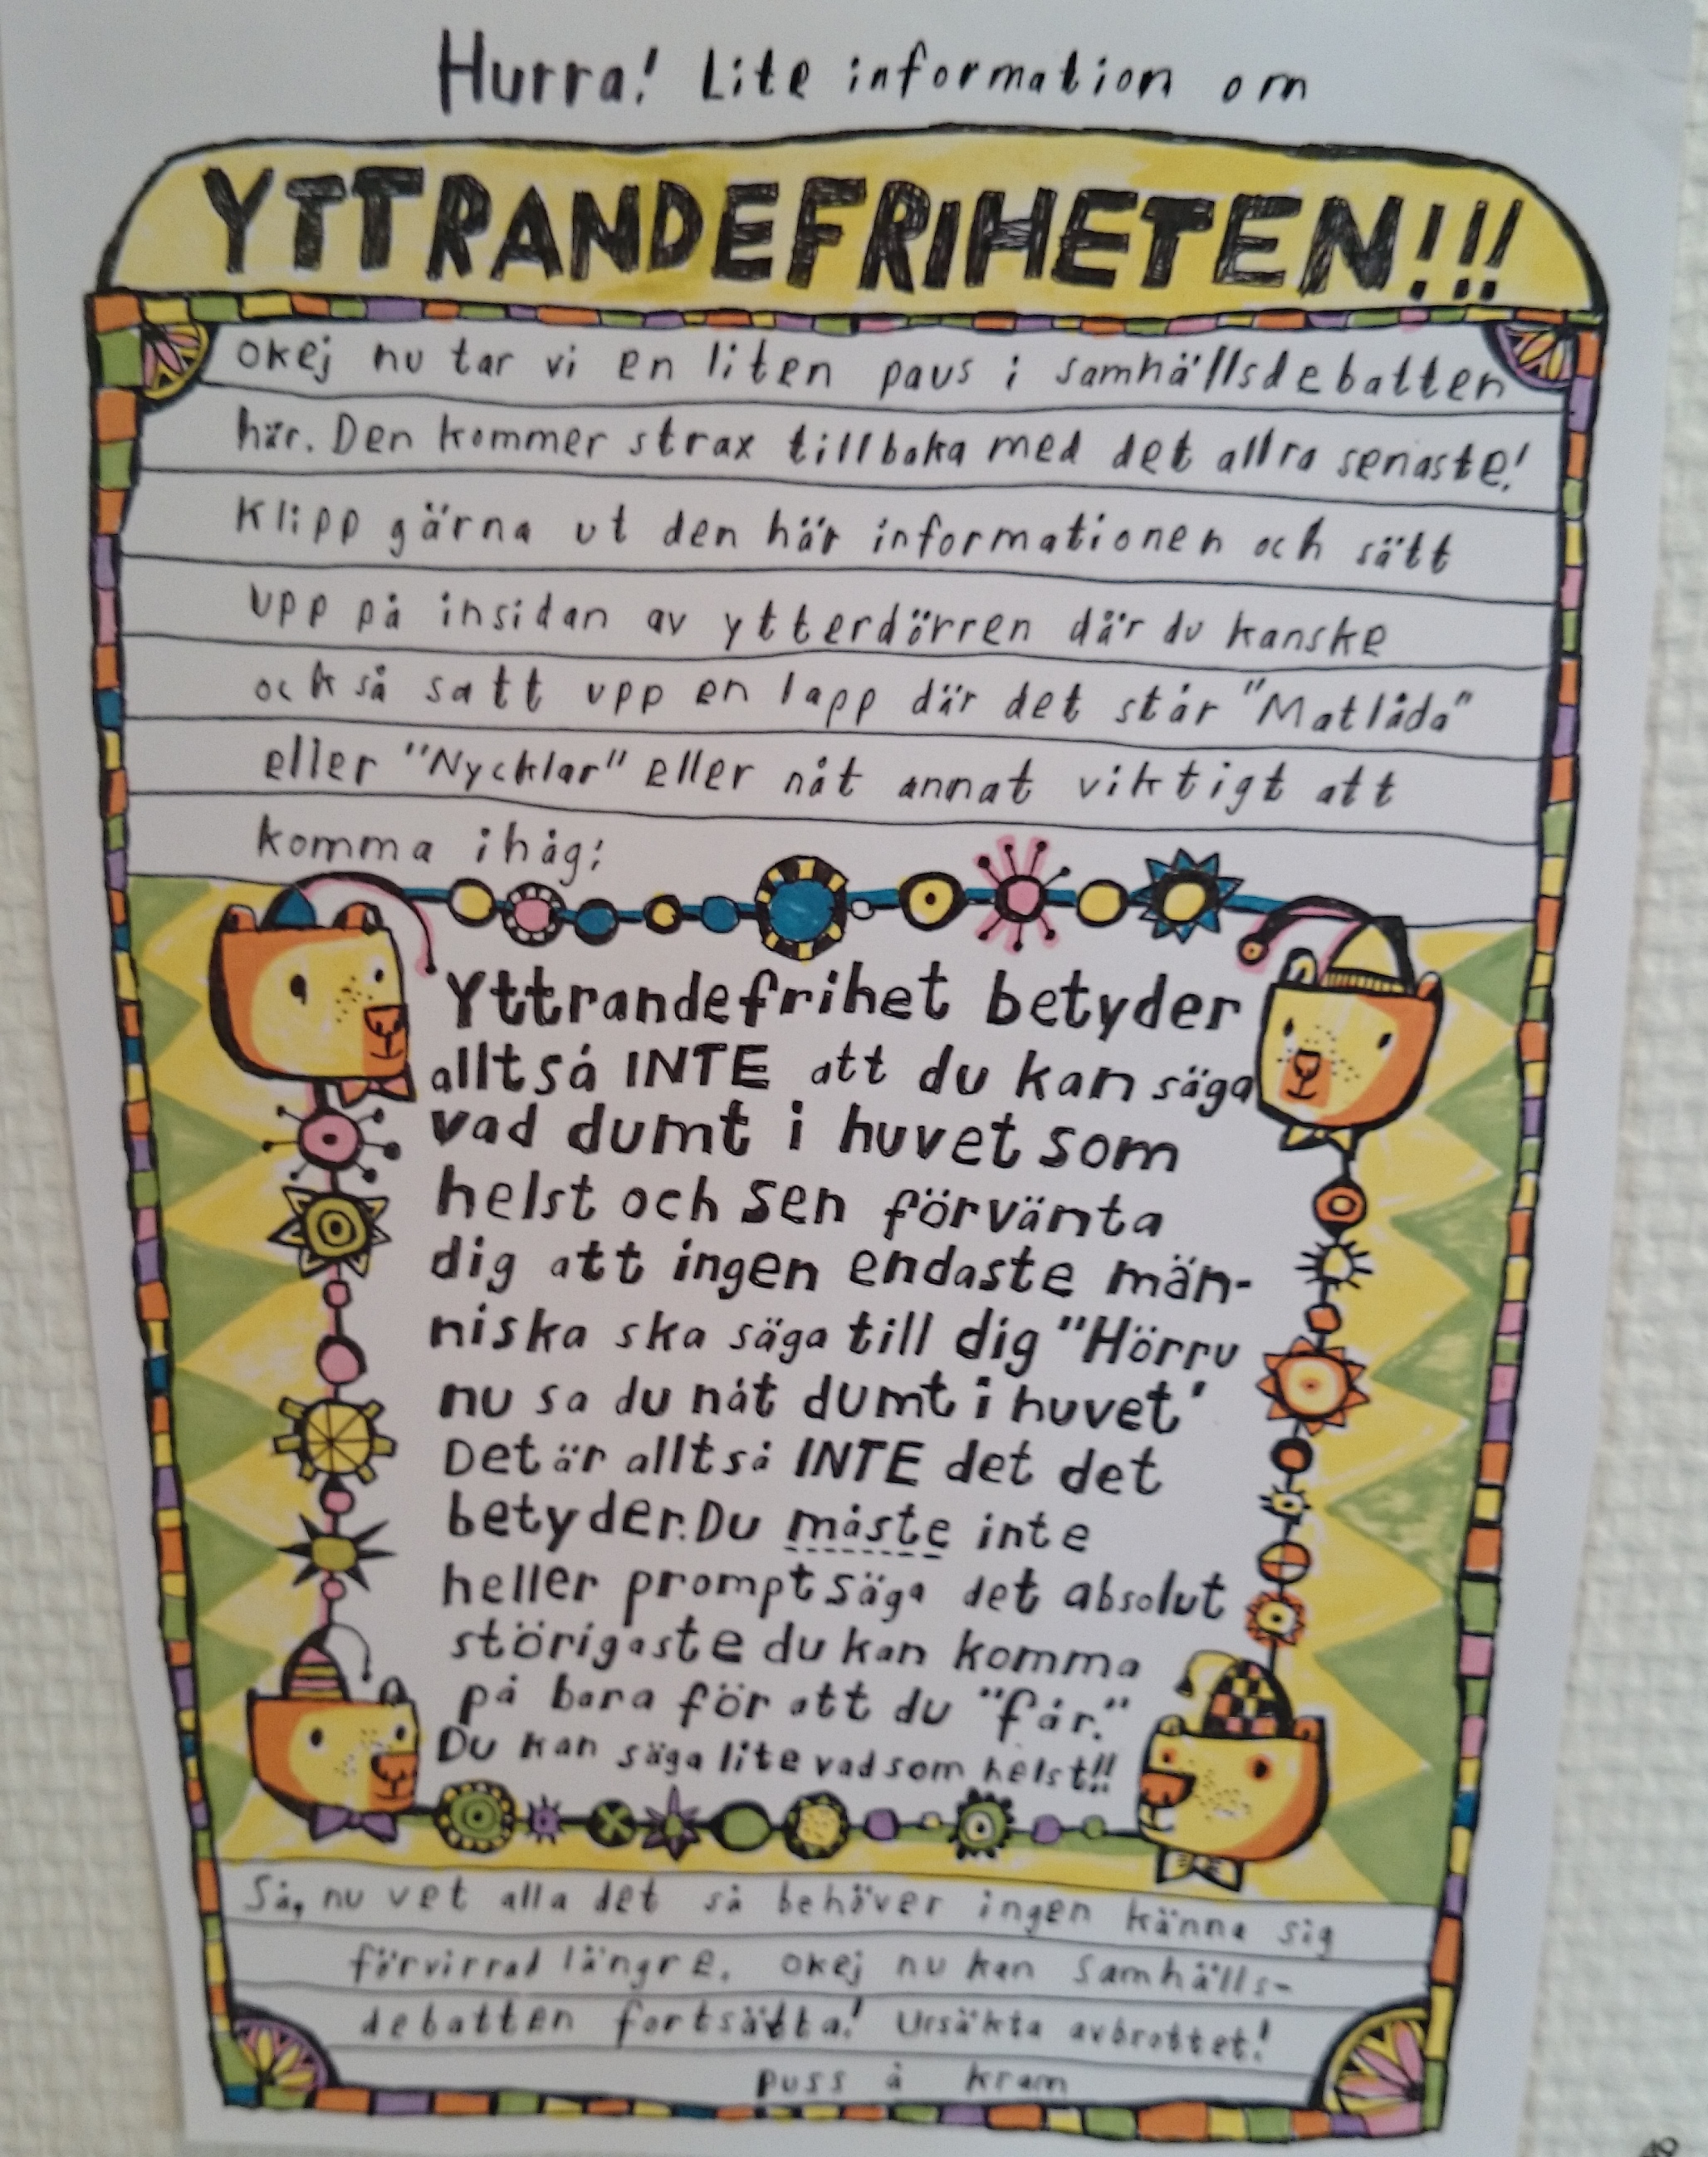 Hurra! Lite information om
YTTRANDEFRIHETEN!!!
okej nu tar vi en liten paus i samhällsdebatten
här. Den kommer strax tillbaka med det allra senaste!
Klipp gärna ut den här informationen och sätt
upp på insidan av ytterdörren där du kanske
också satt upp en lapp där det står "Matlåda"
eller "Nycklar" eller nåt annat viktigt att
komma ihåg:
Yttrandefrihet betyder
alltså INTE att du kan säga
vad dumt i huvet som
helst och sen förvänta
dig att ingen endaste män-
niska ska säga till dig "Hörru
nu sa du nåt dumt i huvet'
Det är alltså INTE det det
betyder. Du måste inte
heller prompt säga det absolut
störigaste du kan komma
på bara för att du "får."
Du kan säga lite vad som helst!!
Så, nu vet alla det så behöver ingen känna sig
förvirrad längre. okej nu kan samhälls-
debatten fortsätta! Ursäkta avbrottet!
puss å kram